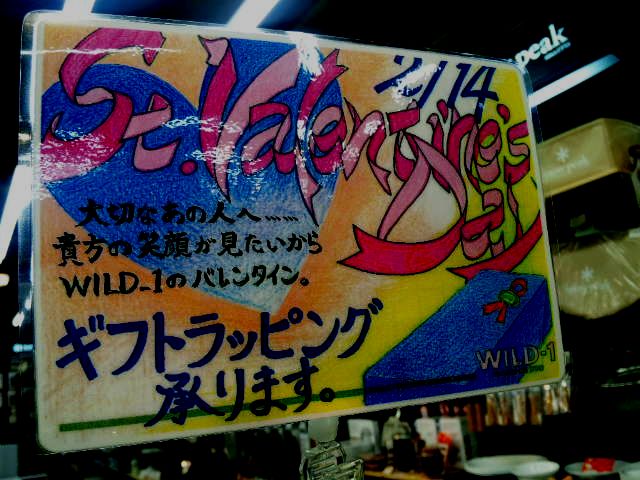 2/14
St. Valentine's Day
大切なあの人へ……
貴方の笑顔が見たいから
WILD-1のバレンタイン。
ギフトラッピング
承ります。
WILD-1
peak